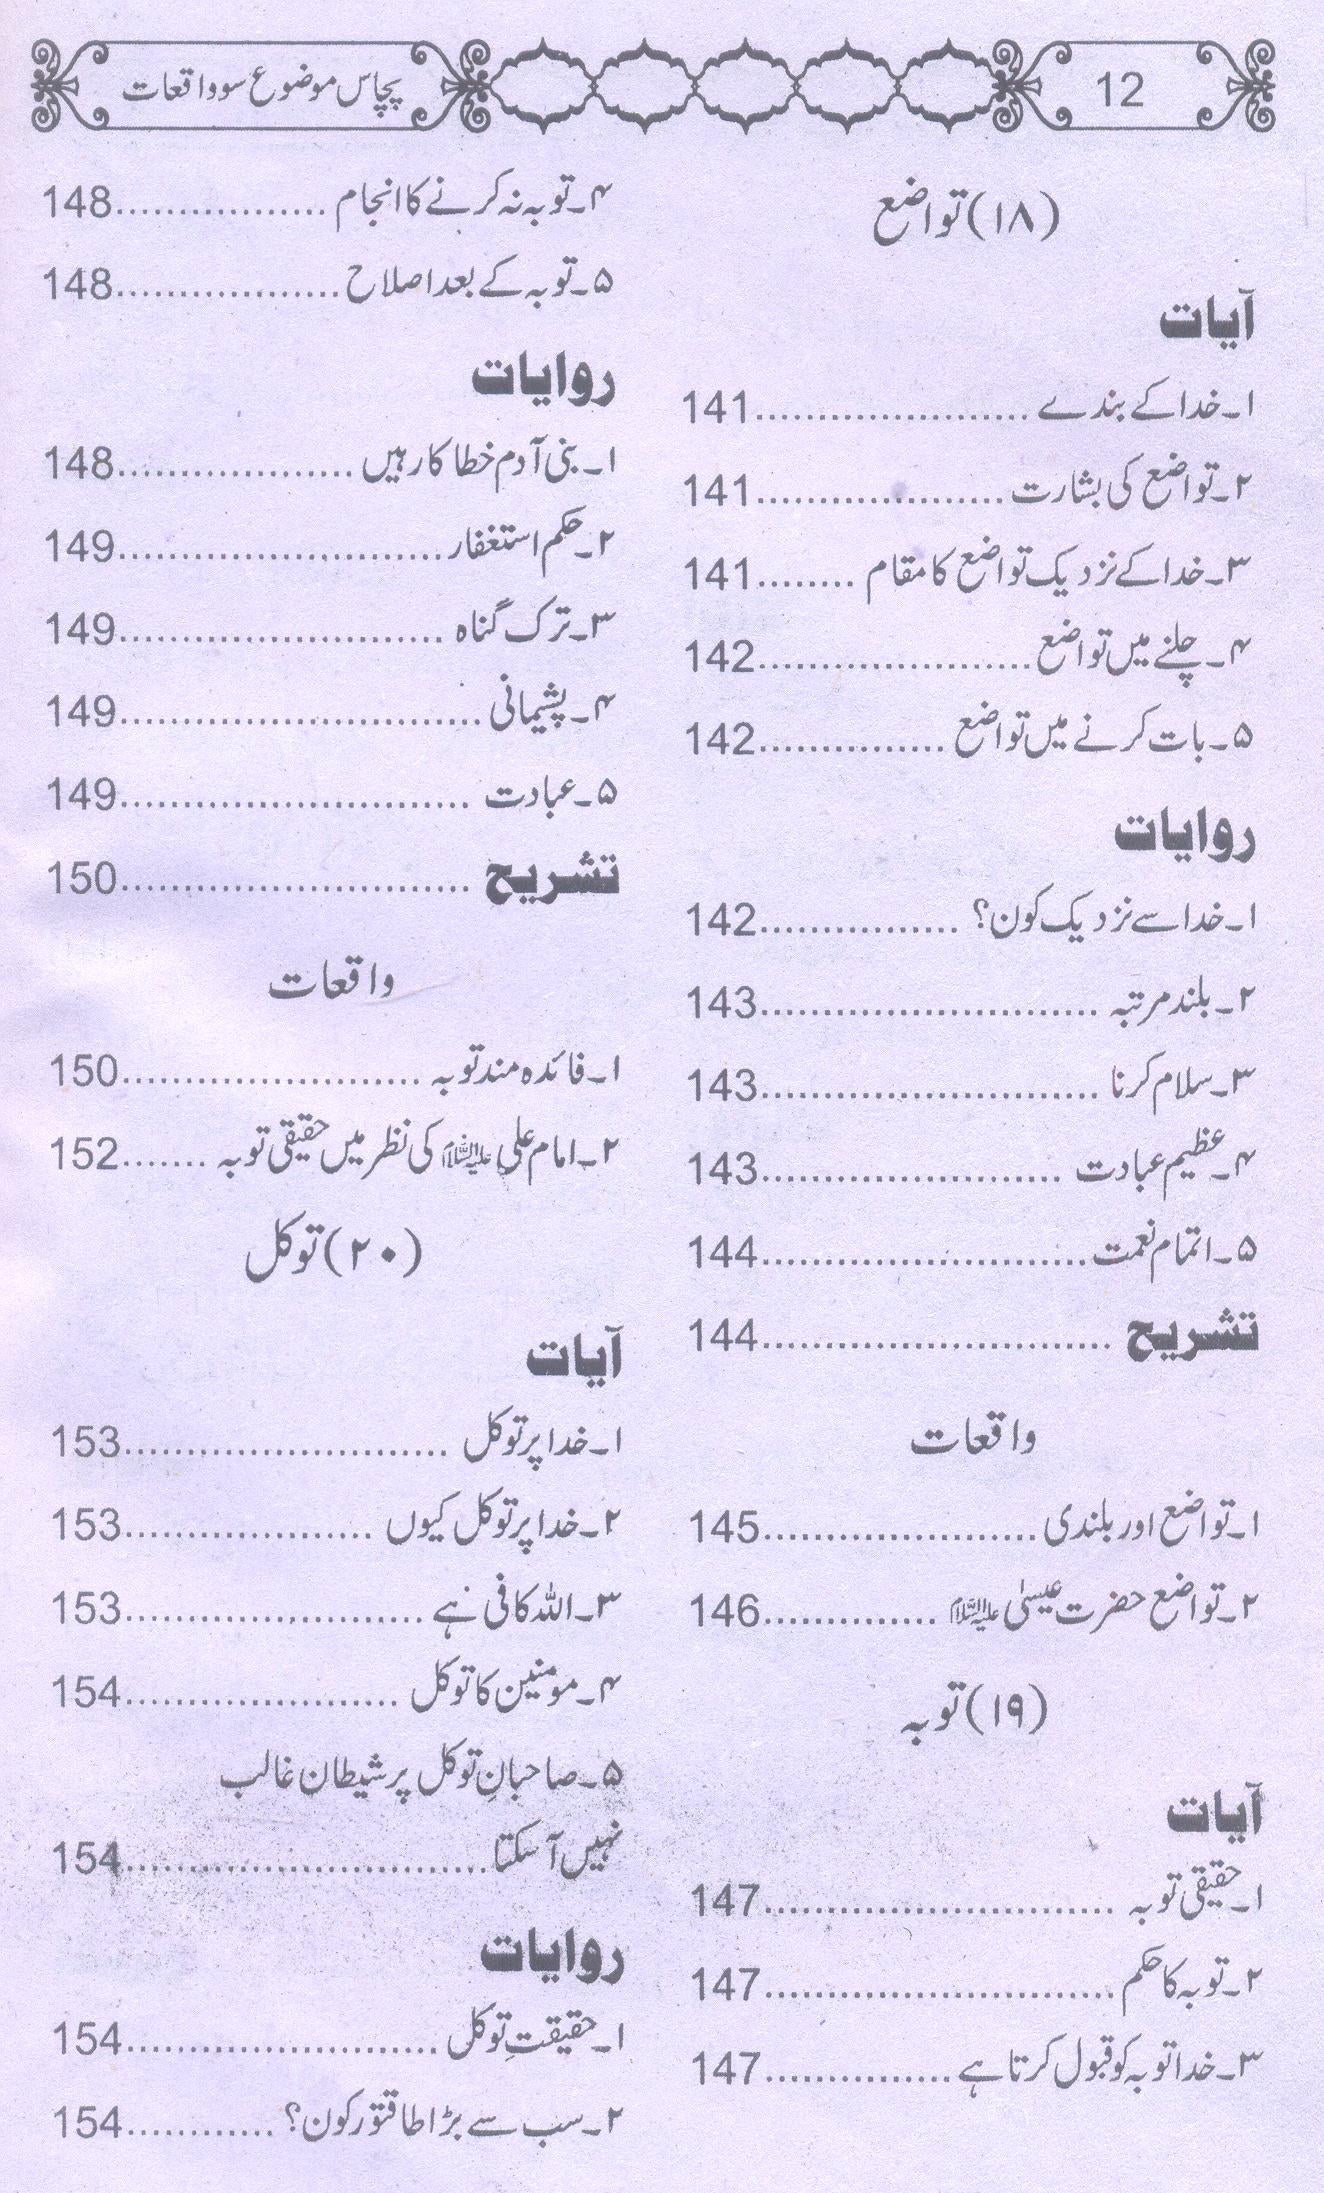 12
پچاس موضوع سو واقعات
(۱۸) تواضع
آیات
۱۔خدا کے بندے ...................... 141
۲۔تواضع کی بشارت .................... 141
۳۔خدا کے نزدیک تواضع کا مقام ........ 141
۴۔چلنے میں تواضع ...................... 142
۵۔بات کرنے میں تواضع ............... 142
روایات
۱۔خدا سے نزدیک کون؟ ................ 142
۲۔بلند مرتبہ ........................... 143
۳۔سلام کرنا ........................... 143
۴۔عظیم عبادت ........................ 143
۵۔اتمام نعمت .......................... 144
تشریح ............................ 144
واقعات
۱۔تواضع اور بلندی ...................... 145
۲۔تواضع حضرت عیسیٰ علیہ السلام .............. 146
(۱۹) توبہ
آیات
۱۔حقیقی توبہ ............................ 147
۲۔توبہ کا حکم ............................ 147
۳۔خدا توبہ کو قبول کرتا ہے ............... 147
۴۔توبہ نہ کرنے کا انجام ................. 148
۵۔توبہ کے بعد اصلاح .................. 148
روایات
۱۔بنی آدم خطا کار ہیں ................... 148
۲۔حکم استغفار .......................... 149
۳۔ترک گناہ .......................... 149
۴۔پشیمانی ............................. 149
۵۔عبادت ............................ 149
تشریح ............................ 150
واقعات
۱۔فائدہ مند توبہ ........................ 150
۲۔امام علی علیہ السلام کی نظر میں حقیقی توبہ ....... 152
(۲۰) توکل
آیات
۱۔خدا پر توکل .......................... 153
۲۔خدا پر توکل کیوں .................... 153
۳۔اللہ کافی ہے ........................ 153
۴۔مومنین کا توکل ...................... 154
۵۔صاحبانِ توکل پر شیطان غالب
نہیں آ سکتا ............................. 154
روایات
۱۔حقیقتِ توکل ......................... 154
۲۔سب سے بڑا طاقتور کون؟ ............ 154